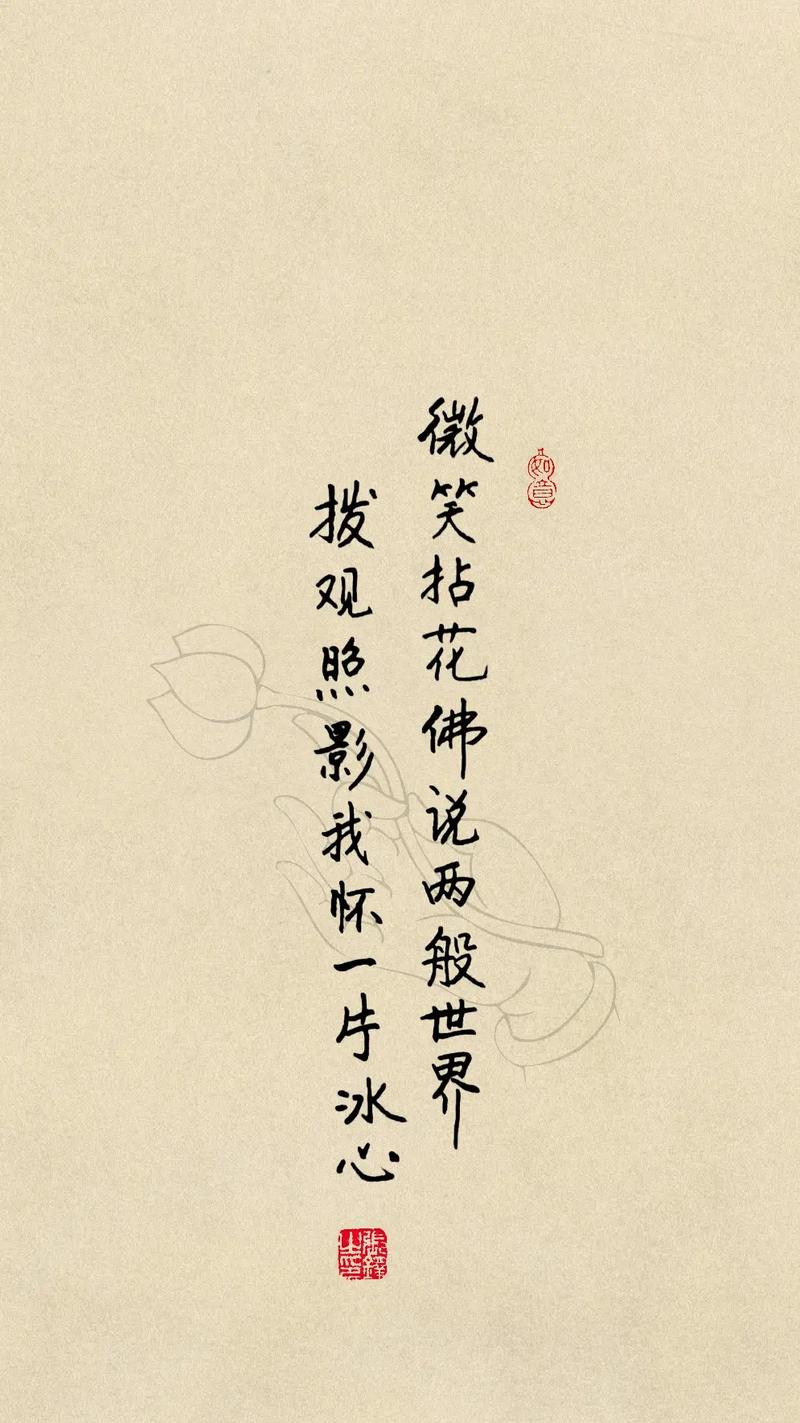 如意
微笑拈花佛说两般世界
拨观照影我怀一片冰心
张铎之印